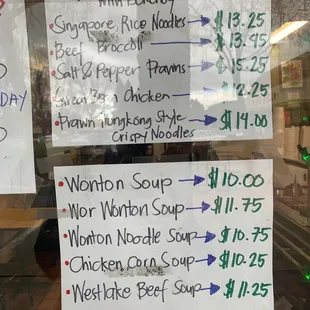 Singapore Rice Noodles → $13.25
• Beef Broccoli → $13.45
• Salt & Pepper Prawns → $15.25
• Green Bean Chicken → $12.25
• Prawn Hongkong Style → $14.00
Crispy Noodles
DAY
• Wonton Soup → $10.00
• Wor Wonton Soup → $11.75
• Wonton Noodle Soup → $10.75
• Chicken Corn Soup → $10.25
• Westlake Beef Soup → $11.25